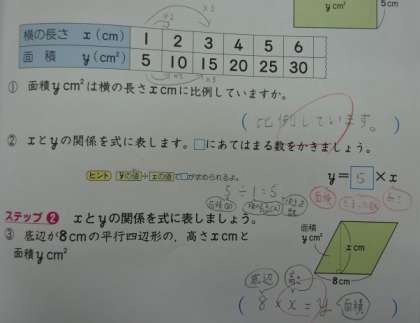 ycm²
5cm
×2 ×3
横の長さ x(cm) 1 2 3 4 5 6
面積 y(cm²) 5 10 15 20 25 30
×2 ×3
① 面積ycm²は横の長さxcmに比例していますか。
(比例しています。)
② xとyの関係を式に表します。□にあてはまる数をかきましょう。
y=5×x
ヒント yの値÷xの値で□が求められるよ。
5÷1=5
面積
ステップ2 xとyの関係を式に表しましょう。
③ 底辺が8cmの平行四辺形の、高さxcmと
面積ycm²
面積
ycm²
xcm
8cm
底辺 高さ
(8×x=y 面積)